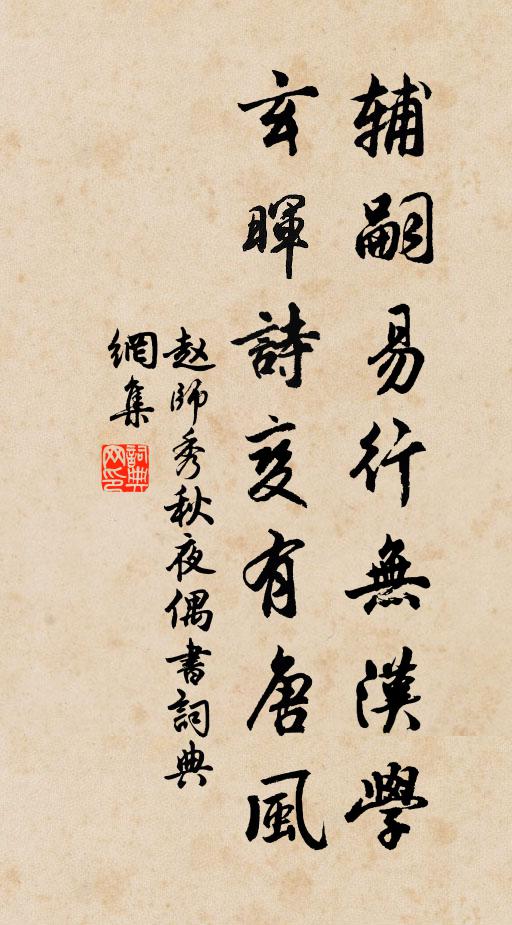 辅嗣易行無漢學
玄暉詩変有唐風
赵師秀秋夜偶書詞典
網集
詞典
网印